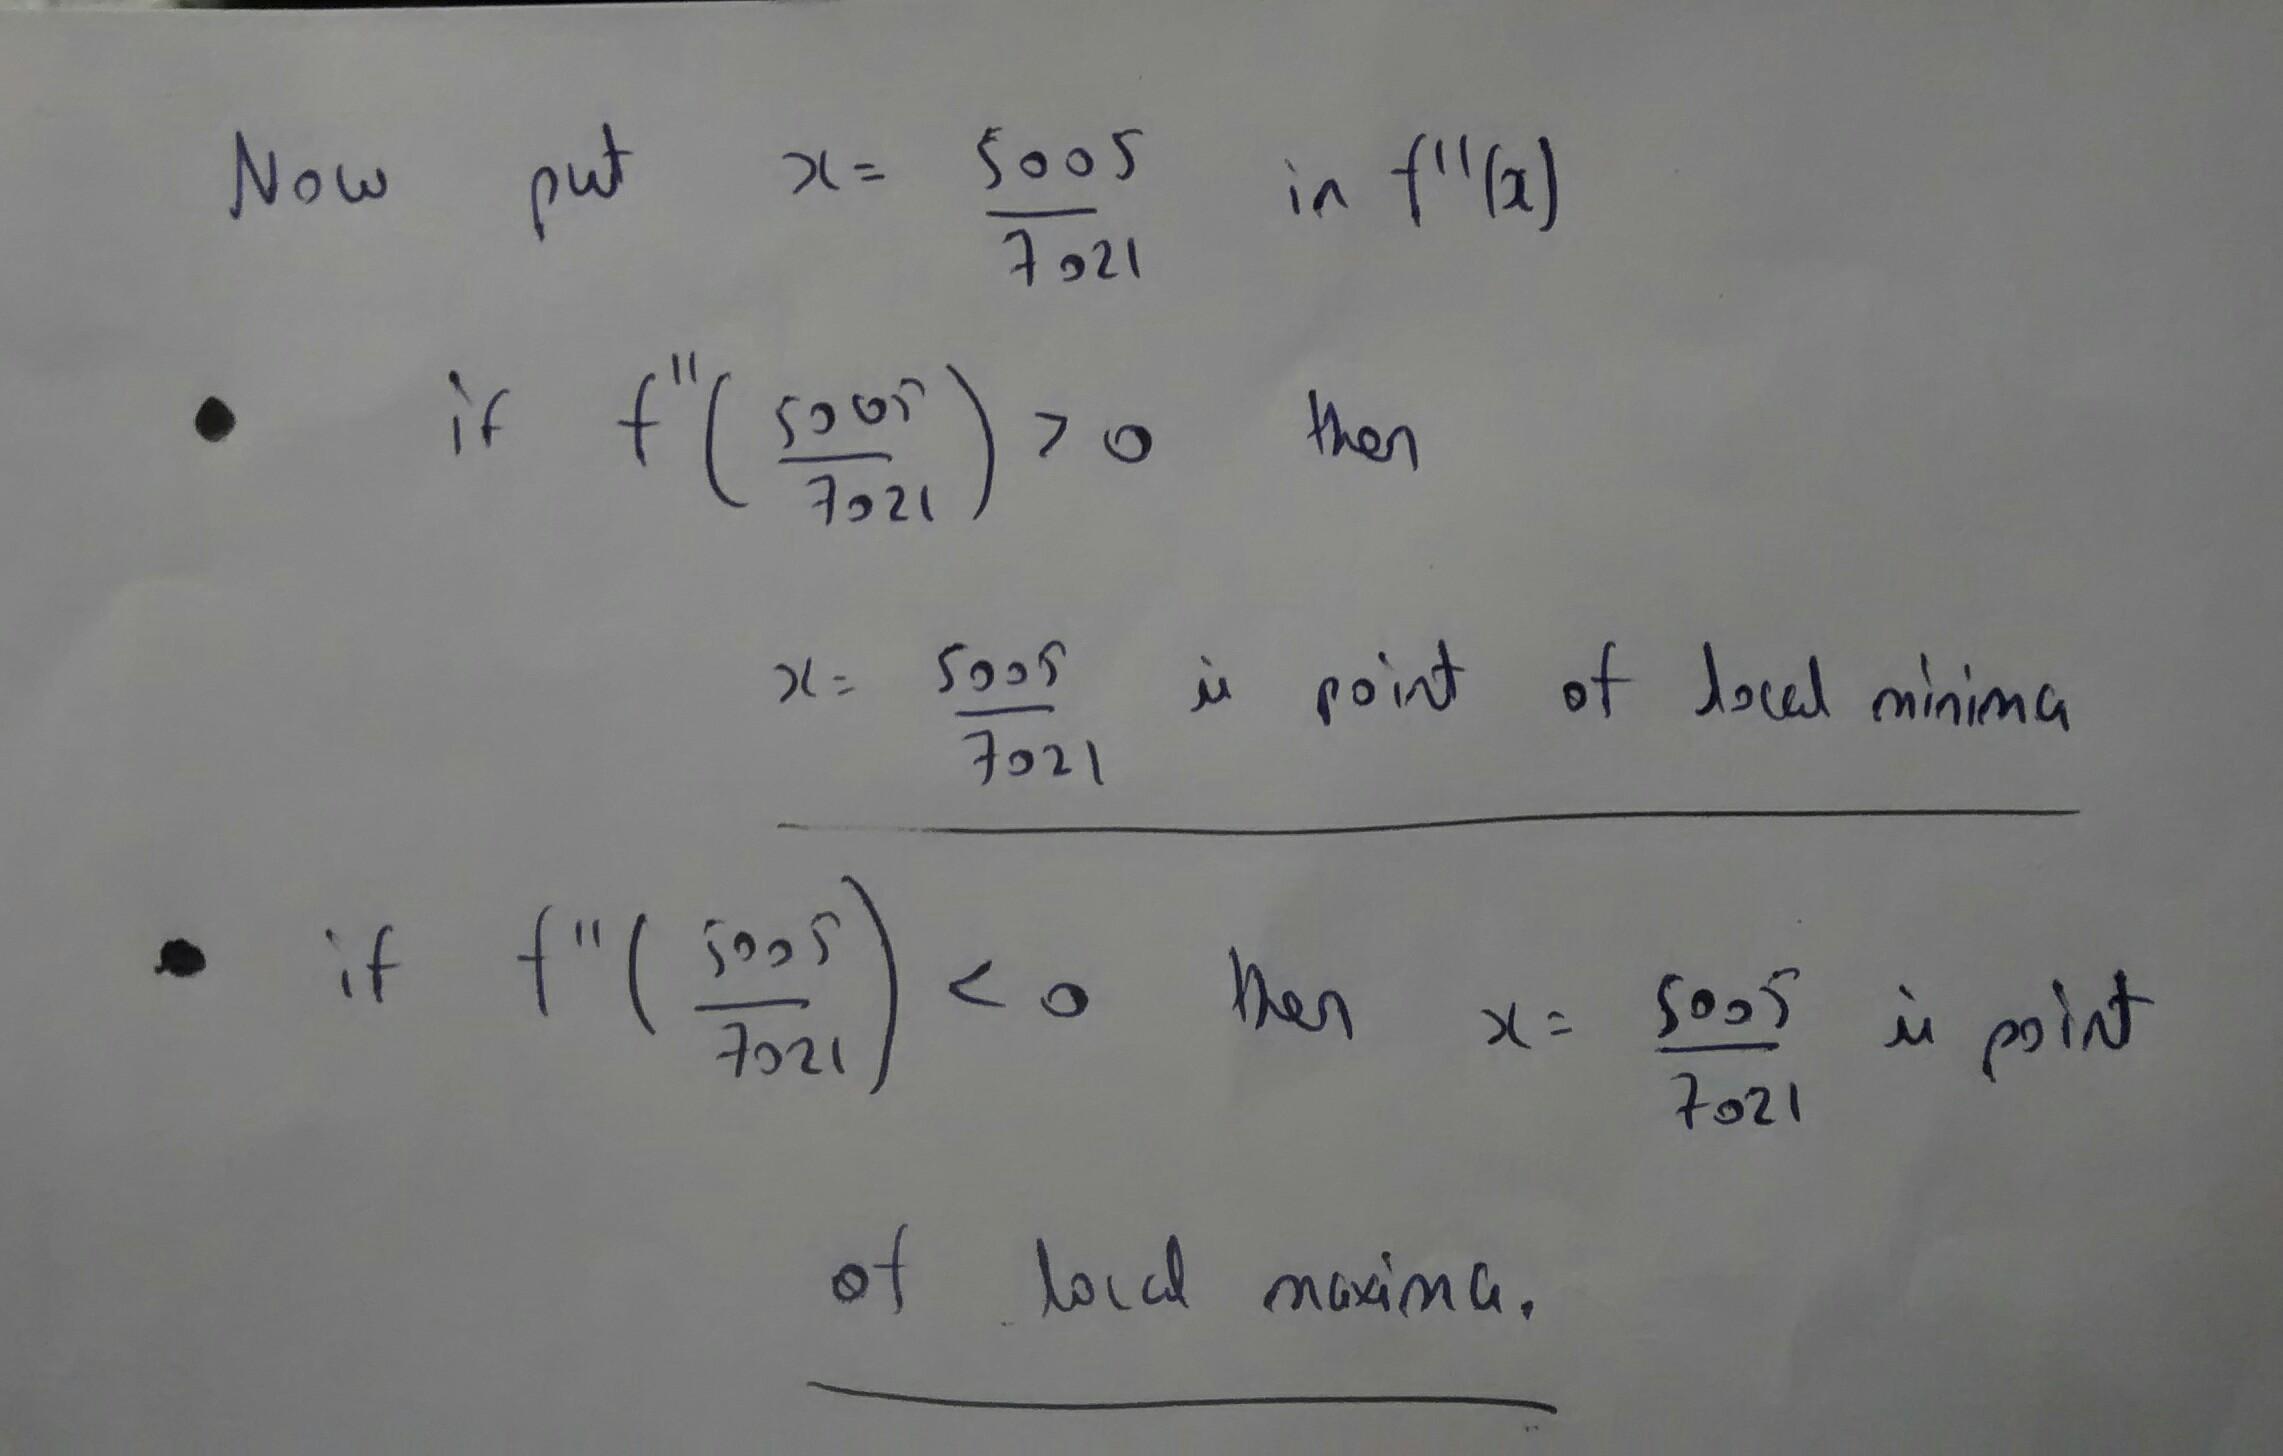 Now put x = 5005/7021 in f''(x)
• if f''(5005/7021) > 0 then
x = 5005/7021 is point of local minima
• if f''(5005/7021) < 0 then x = 5005/7021 is point
of local maxima.